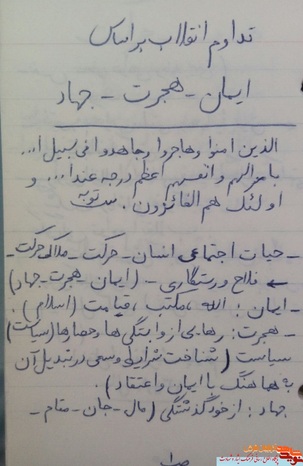 تداوم انقلاب براساس
ایمان - هجرت - جهاد
الذین امنوا و هاجروا و جاهدوا فی سبیل ا...
باموالهم وانفسهم اعظم درجه عندا... و
اولئک هم الفائزون. توبه
- حیات اجتماعی انسان - حرکت - ملاک حرکت -
← فلاح و رستگاری - (ایمان - هجرت - جهاد)
- ایمان: الله، مکتب، قیامت (اسلام).
- هجرت: رهایی از وابستگی‌ها و حصارها (سیاست)
سیاست (شناخت شرایط وسعی در تبدیل آن
به هماهنگ با ایمان و اعتقاد).
جهاد: ازخودگذشتگی (مال - جان - مقام -